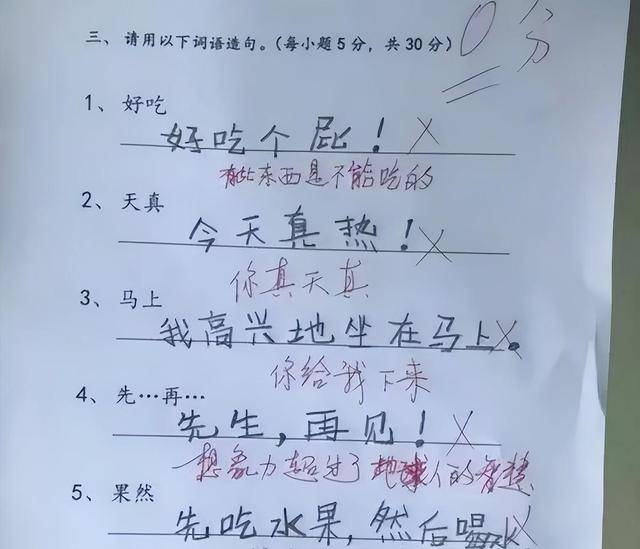 三、请用以下词语造句。(每小题5分,共30分) 0分
1、好吃
好吃个屁!
有些东西是不能吃的
2、天真
今天真热!
你真天真
3、马上
我高兴地坐在马上。
你给我下来
4、先…再…
先生,再见!
想象力超过了地球人的智慧
5、果然
先吃水果,然后喝水